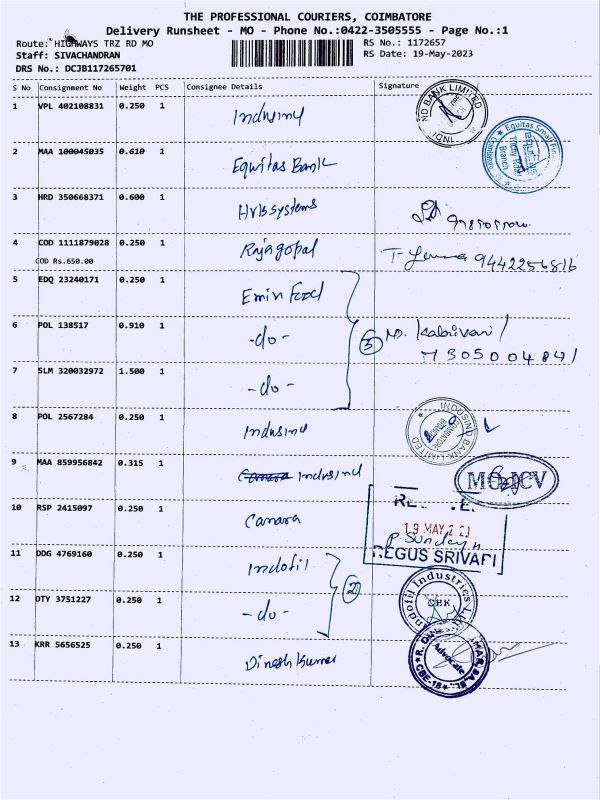 THE PROFESSIONAL COURIERS, COIMBATORE
Delivery Runsheet - MO - Phone No.:0422-3505555 - Page No.:1
Route: HIGHWAYS TRZ RD MO
RS No.: 1172657
Staff: SIVACHANDRAN
RS Date: 19-May-2023
DRS No.: DCJB117265701
S No Consignment No Weight PCS Consignee Details Signature
1 VPL 402108831 0.250 1 Indusind
IND BANK LIMITED
2 MAA 100045035 0.610 1 Equitas Bank
Equitas Small Fin
Trichy Road
Branch
3 HRD 350668371 0.600 1 HVBsystems
4 COD 1111879028 0.250 1 Rajagopal
9442256816
COD Rs.650.00
5 EDQ 23240171 0.250 1 Emin Food
6 POL 138517 0.910 1 -do-
3
7 SLM 320032972 1.500 1 -do-
8 POL 2567284 0.250 1 Indusind
INDUSIND BANK LIMITED
COIMBATORE
9 MAA 859956842 0.315 1 Canara Indusind
10 RSP 2415097 0.250 1 Canara
19 MAY 2023
REGUS SRIVARI
11 DDG 4769160 0.250 1 Indofil
2
12 DTY 3751227 0.250 1 -do-
Indofil Industries Ltd
CBE
13 KRR 5656525 0.250 1 Dinesh Kumar
Advocate
CBE-18